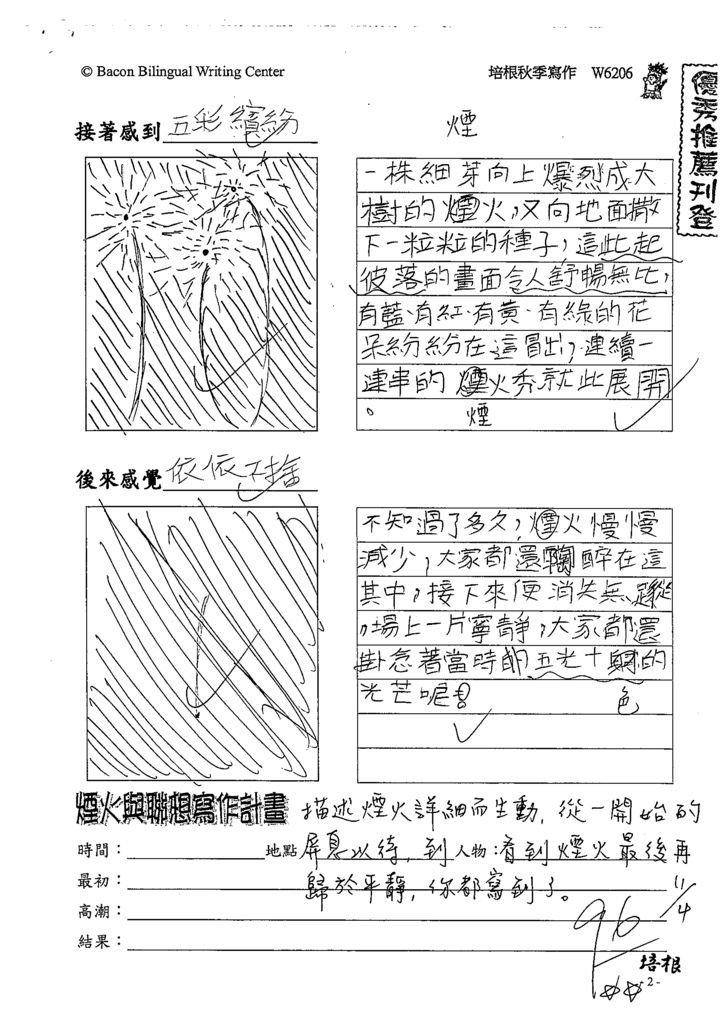 © Bacon Bilingual Writing Center
培根秋季寫作 W6206
優秀推薦刊登
接著感到 五彩繽紛
煙
一株細芽向上爆烈成大
樹的煙火,又向地面撒
下一粒粒的種子,這此起
彼落的畫面令人舒暢無比,
有藍、有紅、有黃、有綠的花
朵紛紛在這冒出,連續一
連串的煙火秀就此展開
。
煙
後來感覺 依依不捨
不知過了多久,煙火慢慢
減少,大家都還陶醉在這
其中,接下來便消失無蹤
,場上一片寧靜,大家都還
掛念著當時的五光十射的
光芒呢!
色
煙火與聯想寫作計畫
描述煙火詳細而生動,從一開始的
時間:
地點
屏息以待,到
人物:
看到煙火最後再
最初:
歸於平靜,你都寫到了。
11/4
高潮:
96
結果:
培根
-2-